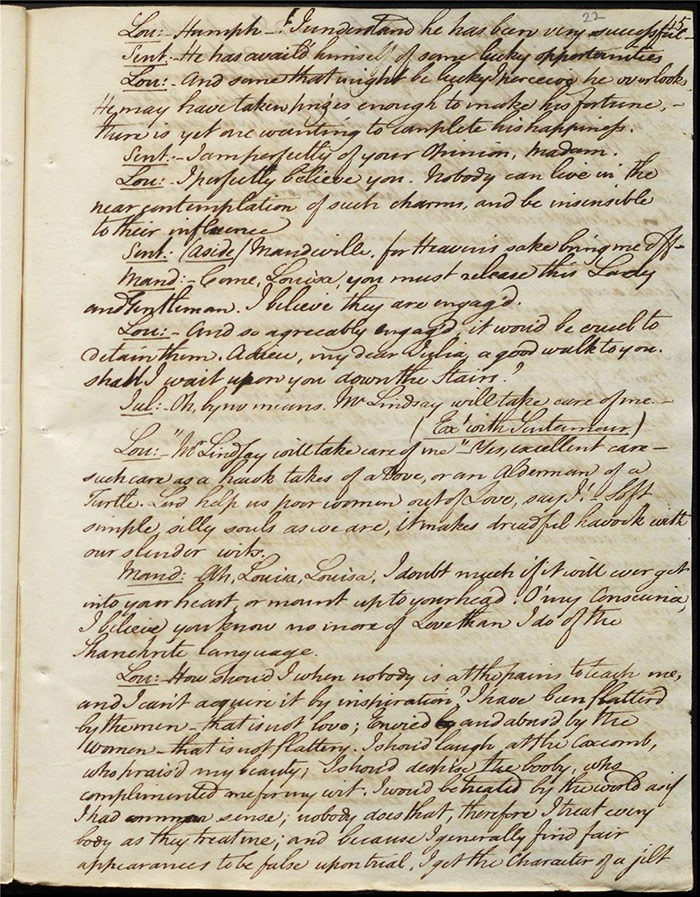 22
15
Lou:- Humph-! I understand he has been very successful-
Sent.- He has avail'd himself of some lucky opportunities
Lou:- And some that might be lucky I perceive he overlooks,
He may have taken prizes enough to make his fortune,-
there is yet one wanting to complete his happiness.
Sent.- I am perfectly of your Opinion, Madam.
Lou:- I perfectly believe you. Nobody can live in the
near contemplation of such charms, and be insensible
to their influence
Sent: (aside) Mandeville, for Heaven's sake bring me off-
Mand:- Come, Louisa, you must release this Lady
and Gentleman. I believe they are engag'd.
Lou:- And so agreeably engag'd, it wou'd be cruel to
detain them. Adieu, my dear Julia, a good walk to you.
shall I wait upon you down the Stairs?
Jul:- Oh, by no means. Mr Lindsay will take care of me.-
(Ext with Sentamour)
Lou:- "Mr Lindsay will take care of me"- Yes, excellent care-
such care as a hawk takes of a Dove, or an Alderman of a
Turtle. Lord help us poor women out of Love, say I! Soft
simple, silly souls as we are, it makes dreadful havock with
our slender wits.
Mand: Ah, Louisa, Louisa, I doubt much if it will ever get
into your heart, or mount up to your head! O' my Conscience,
I believe you know no more of Love than I do of the
Shanchrite language.
Lou:- How shou'd I when nobody is at the pains to teach me,
and I can't acquire it by inspiration? I have been flatter'd
by the men - that is not love; Envied and abus'd by the
Women - that is not flattery. I shou'd laugh at the Coxcomb,
who prais'd my beauty; I shou'd despise the booby, who
complimented me for my wit. I wou'd be treated by the world as if
I had common sense; nobody does that, therefore I treat every
body as they treat me; and because I generally find fair
appearances to be false upon trial, I get the Character of a jilt